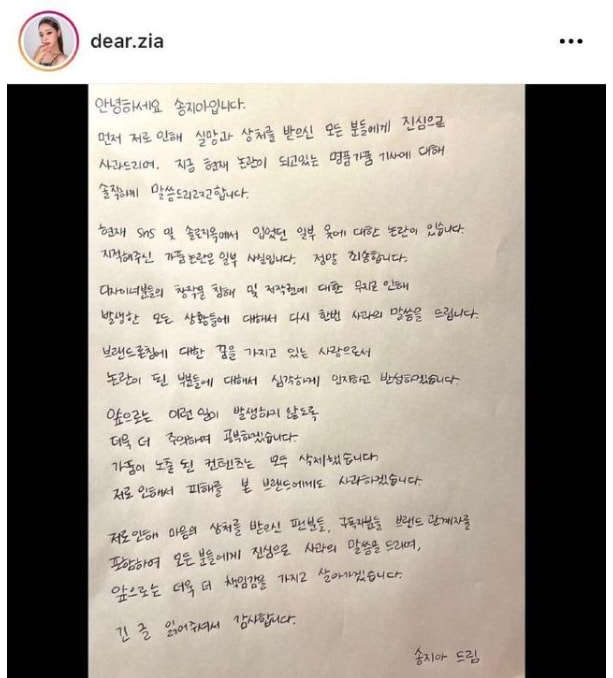 dear.zia
안녕하세요 송지아입니다.
먼저 저로 인해 실망과 상처를 받으신 모든 분들에게 진심으로
사과드리며, 지금 현재 논란이 되고있는 명품가품 기사에 대해
솔직하게 말씀드리려고합니다.
현재 SNS 및 솔로지옥에서 입었던 일부 옷에 대한 논란이 있습니다.
지적해주신 가품논란은 일부 사실입니다. 정말 죄송합니다.
디자이너분들의 창작물 침해 및 저작권에 대한 무지로 인해
발생한 모든 상황들에 대해서 다시 한번 사과의 말씀을 드립니다.
브랜드론칭에 대한 꿈을 가지고 있는 사람으로서
논란이 된 부분들에 대해서 심각하게 인지하고 반성하겠습니다.
앞으로는 이런 일이 발생하지 않도록
더욱 더 주의하며 공부하겠습니다.
가품이 노출 된 컨텐츠는 모두 삭제했습니다.
저로 인해서 피해를 본 브랜드에게도 사과하겠습니다.
저로인해 마음의 상처를 받으신 팬분들, 구독자분들 브랜드 관계자를
포함하여 모든분들에게 진심으로 사과의 말씀을 드리며,
앞으로는 더욱 더 책임감을 가지고 살아가겠습니다.
긴 글 읽어주셔서 감사합니다.
송지아 드림